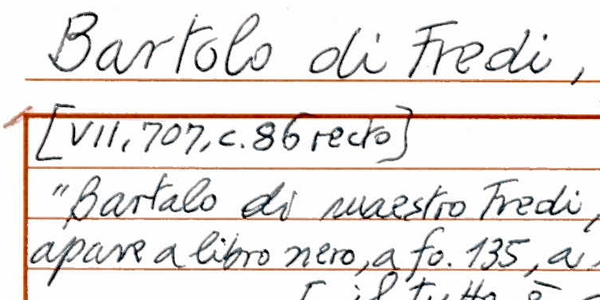 Bartolo di Fredi,
[VII, 707, c. 86 recto]
"Bartalo di maestro Fredi,
apare a libro nero, a fo. 135, a
[il tutto è